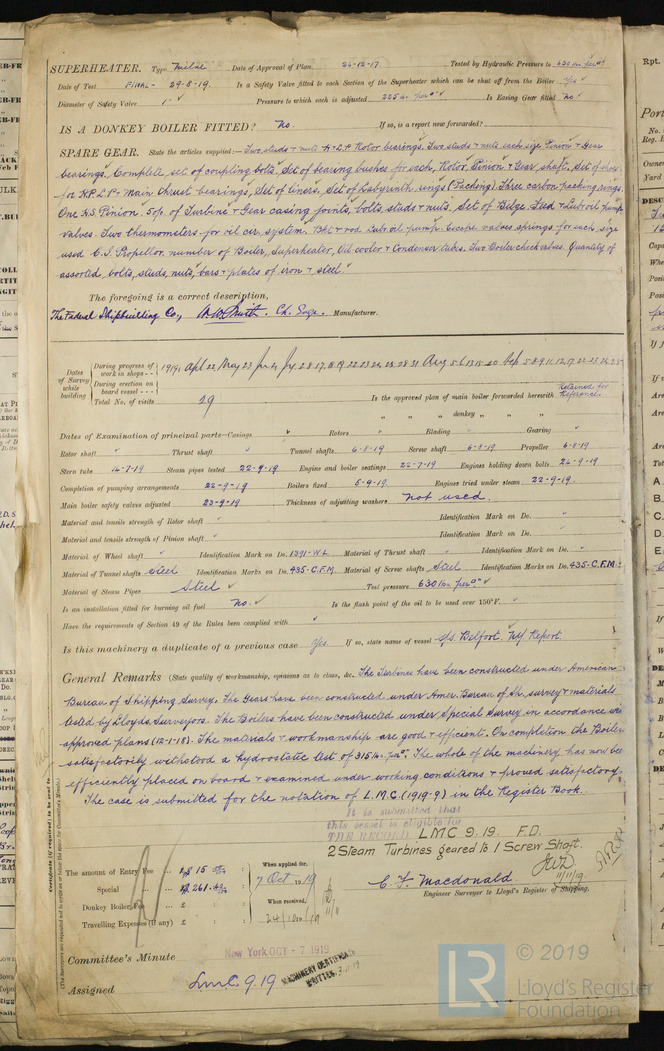 SUPERHEATER. Type Date of Approval of Plan 26-12-17 Tested by Hydraulic Pressure to 630 lbs. per □"
Date of Test FINAL - 29-8-19. Is a Safety Valve fitted to each Section of the Superheater which can be shut off from the Boiler yes
Diameter of Safety Valve 1" Pressure to which each is adjusted 225 lbs. per □" Is Easing Gear fitted No
IS A DONKEY BOILER FITTED? No. If so, is a report now forwarded?
SPARE GEAR. State the articles supplied:— Two studs & nuts H & L.P. Rotor bearings. Two studs & nuts each size Pinion & Gear
bearings. Complete set of coupling bolts. Set of bearing bushes for each, Rotor, Pinion & Gear shaft. Set of
for H.P. L.P. & Main thrust bearings, Set of liners. Set of Labyrinth rings (Packing). Three carbon packing rings.
One H.S. Pinion. 5% of Turbine & Gear casing joints, bolts studs & nuts. Set of Bilge, Feed & Lub oil pump
valves. Two thermometers for oil cir. system. Bkt & rod Lub. oil pump. Escape valves springs for each size
used. C.I. Propellor. number of Boiler, Superheater, Oil cooler & Condenser tubes. Two Boiler check valves. Quantity of
assorted bolts, studs, nuts, bars & plates of iron & steel
The foregoing is a correct description,
The Federal Shipbuilding Co., Smith. Ch. Engr. Manufacturer.
Dates of Survey while building
During progress of work in shops - - 1919: Apl 22 May 23
During erection on board vessel - - -
Total No. of visits 29 Is the approved plan of main boiler forwarded herewith Retained for Reference.
" " " donkey " " "
Dates of Examination of principal parts—Casings Rotors Blading Gearing
Rotor shaft Thrust shaft Tunnel shafts 6-8-19 Screw shaft 6-8-19 Propeller 6-8-19
Stern tube 14-7-19 Steam pipes tested 22-9-19 Engine and boiler seatings 22-7-19 Engines holding down bolts 24-9-19
Completion of pumping arrangements 22-9-19 Boilers fixed 5-9-19. Engines tried under steam 22-9-19.
Main boiler safety valves adjusted 23-9-19 Thickness of adjusting washers Not used.
Material and tensile strength of Rotor shaft Identification Mark on Do.
Material and tensile strength of Pinion shaft Identification Mark on Do.
Material of Wheel shaft Identification Mark on Do. 1391-W.L. Material of Thrust shaft Identification Mark on Do.
Material of Tunnel shafts Steel Identification Marks on Do. 435-C.F.M. Material of Screw shafts Steel Identification Marks on Do. 435-C.F.M.
Material of Steam Pipes Steel Test pressure 630 lbs. per □"
Is an installation fitted for burning oil fuel No. Is the flash point of the oil to be used over 150°F.
Have the requirements of Section 49 of the Rules been complied with
Is this machinery a duplicate of a previous case Yes. If so, state name of vessel S/S. Belfort. NY Report.
General Remarks (State quality of workmanship, opinions as to class, &c. The Turbines have been constructed under American
Bureau of Shipping Survey. The Gears have been constructed under Amer. Bureau of Sh. survey & materials
tested by Lloyds Surveyors. The Boilers have been constructed under Special Survey in accordance
approved plans (12-1-18). The materials & workmanship are good & efficient. On completion the Boiler
satisfactorily withstood a hydrostatic test of 315 lbs. per □". The whole of the machinery has now been
efficiently placed on board & examined under working conditions & proved satisfactory.
The case is submitted for the notation of L.M.C. (1919-9) in the Register Book.
It is submitted that
this vessel is eligible for
THE RECORD. LMC 9.19. F.D.
2 Steam Turbines geared to 1 Screw Shaft.
11/11/19
The amount of Entry Fee ... 15 When applied for,
Special ... 261 7 Oct 1919
Donkey Boiler Fee ... £ When received,
Travelling Expenses (if any) £
C. F. Macdonald
Engineer Surveyor to Lloyd's Register of Shipping.
Committee's Minute New York OCT - 7 1919
Assigned L.M.C. 9.19
MACHINERY CERTIFICATE
WRITTEN
LR © 2019
Lloyd's Register
Foundation